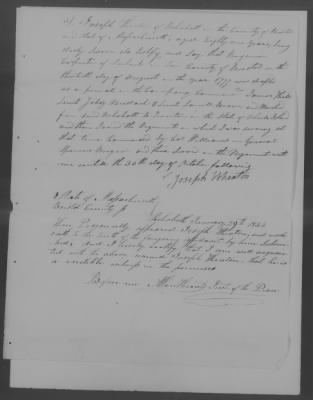 I, Joseph Wheaton of Rehoboth in the County of Bristol
and State of Massachusetts, aged Eighty one years, being
duly sworn do testify and say that Benjamin
Carpenter of Rehoboth in the County of Bristol on the
thirtieth day of August in the year 1777 was drafted
as a private in the Company commanded James Hill
Lieut.
from said Rehoboth to in the State of Rhode Island
and then Joined the Regiment in which I was serving at
that time Commanded by Col Williams General
Spencers Brigade and there served in the Regiment with
me until the 30th day of October following
Joseph Wheaton
State of Massachusetts
Bristol County Ss Rehoboth January 29th
Then Personally appeared Joseph Wheaton and made
oath to the truth of the foregoing affidavit by him Subscri-
bed; And I hereby certify that I am well acquain-
ted with the above named Joseph Wheaton that he is
a credible in the premises
Before me Just of the Peace